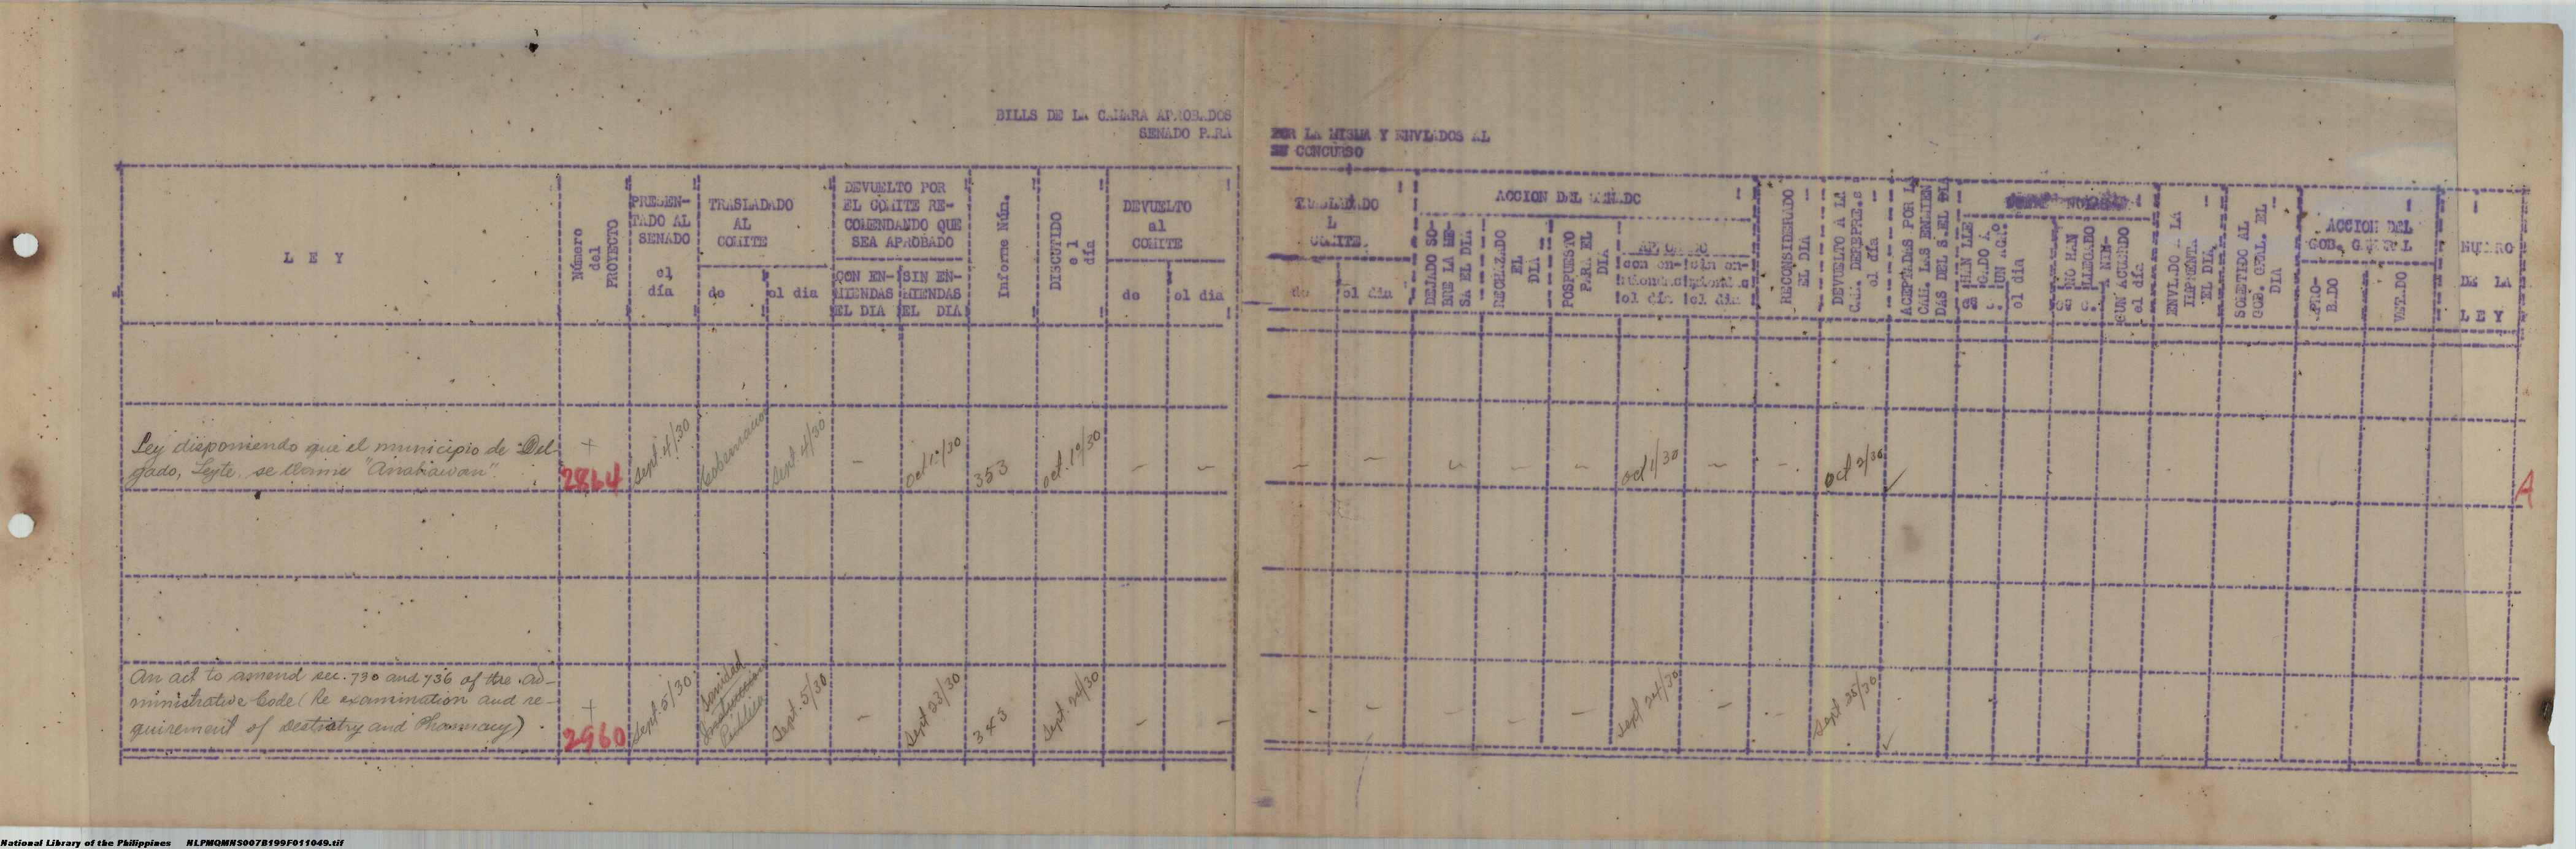 BILLS DE LA CAMARA APROBADOS
SENADO PARA
POR LA MISMA Y ENVIADOS AL
SU CONCURSO
L E Y
Número
del
PROYECTO
PRESEN-
TADO AL
SENADO
el
día
TRASLADADO
AL
COMITE
de
el dia
DEVUELTO POR
EL COMITE RE-
COMENDANDO QUE
SEA APROBADO
CON EN-
MIENDAS
EL DIA
SIN EN-
MIENDAS
EL DIA
Informe Núm.
DISCUTIDO
el
día
DEVUELTO
al
COMITE
de
el dia
TRASLADADO
COMITE
de
el dia
ACCION DEL SENADO
DEJADO SO-
BRE LA ME-
SA EL DIA
RECHAZADO
EL
DIA
POSPUESTO
PARA EL
DIA
APROBADO
con en-
sin en-
el día
el dia
RECONSIDERADO
EL DIA
DEVUELTO A LA
CAM. DEREPRE.s
el día
ACEPTADAS POR LA
CAM. LAS ENMIEN
DAS DEL S.EL DIA
HAN LLE
GADO A
UN ACdo
el dia
NO HAN
LLEGADO
A NIN-
GUN ACUERDO
el día
ENVIADO A LA
IMPRENTA
EL DIA
SOMETIDO AL
GOB. GRAL. EL
DIA
ACCION DEL
GOB. GENERAL
APRO-
BADO
VETADO
NUMERO
DE LA
L E Y
Ley disponiendo que el municipio de Del-
gado, Leyte, se llame "Anahawan".
+
2864
Sept. 4/30
Gobernacion
Sept. 4/30
–
Oct 1º/30
353
Oct. 1º/30
– –
– – – – – Oct 1/30 – – Oct 2/30 ✓
A
An act to amend sec. 730 and 736 of the Ad-
ministrative Code (Re examination and re-
quirement of Destistry and Pharmacy).
+
2960
Sept. 5/30
Sanidad
Instruccion
Publica
Sept. 5/30
–
Sept 23/30
343
Sept. 24/30
– –
– – – – – Sept 24/30 – – Sept. 25/30 ✓
National Library of the Philippines NLPMQMNS007B199F011049.tif